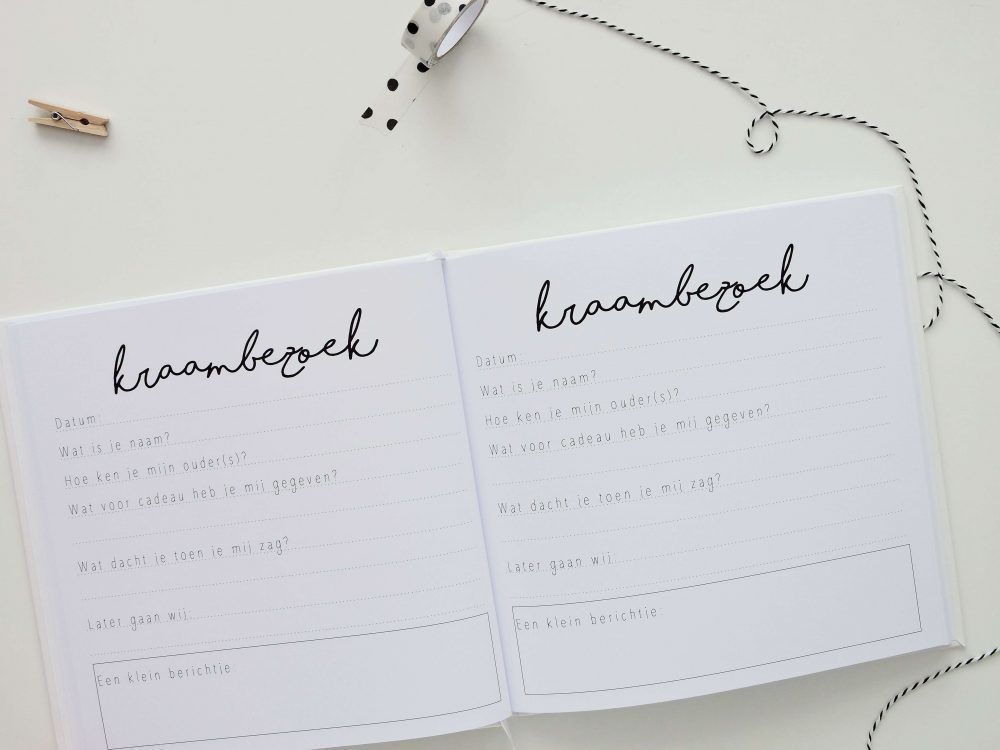 kraambezoek
Datum:
Wat is je naam?
Hoe ken je mijn ouder(s)?
Wat voor cadeau heb je mij gegeven?
Wat dacht je toen je mij zag?
Later gaan wij:
Een klein berichtje:
kraambezoek
Datum:
Wat is je naam?
Hoe ken je mijn ouder(s)?
Wat voor cadeau heb je mij gegeven?
Wat dacht je toen je mij zag?
Later gaan wij:
Een klein berichtje: